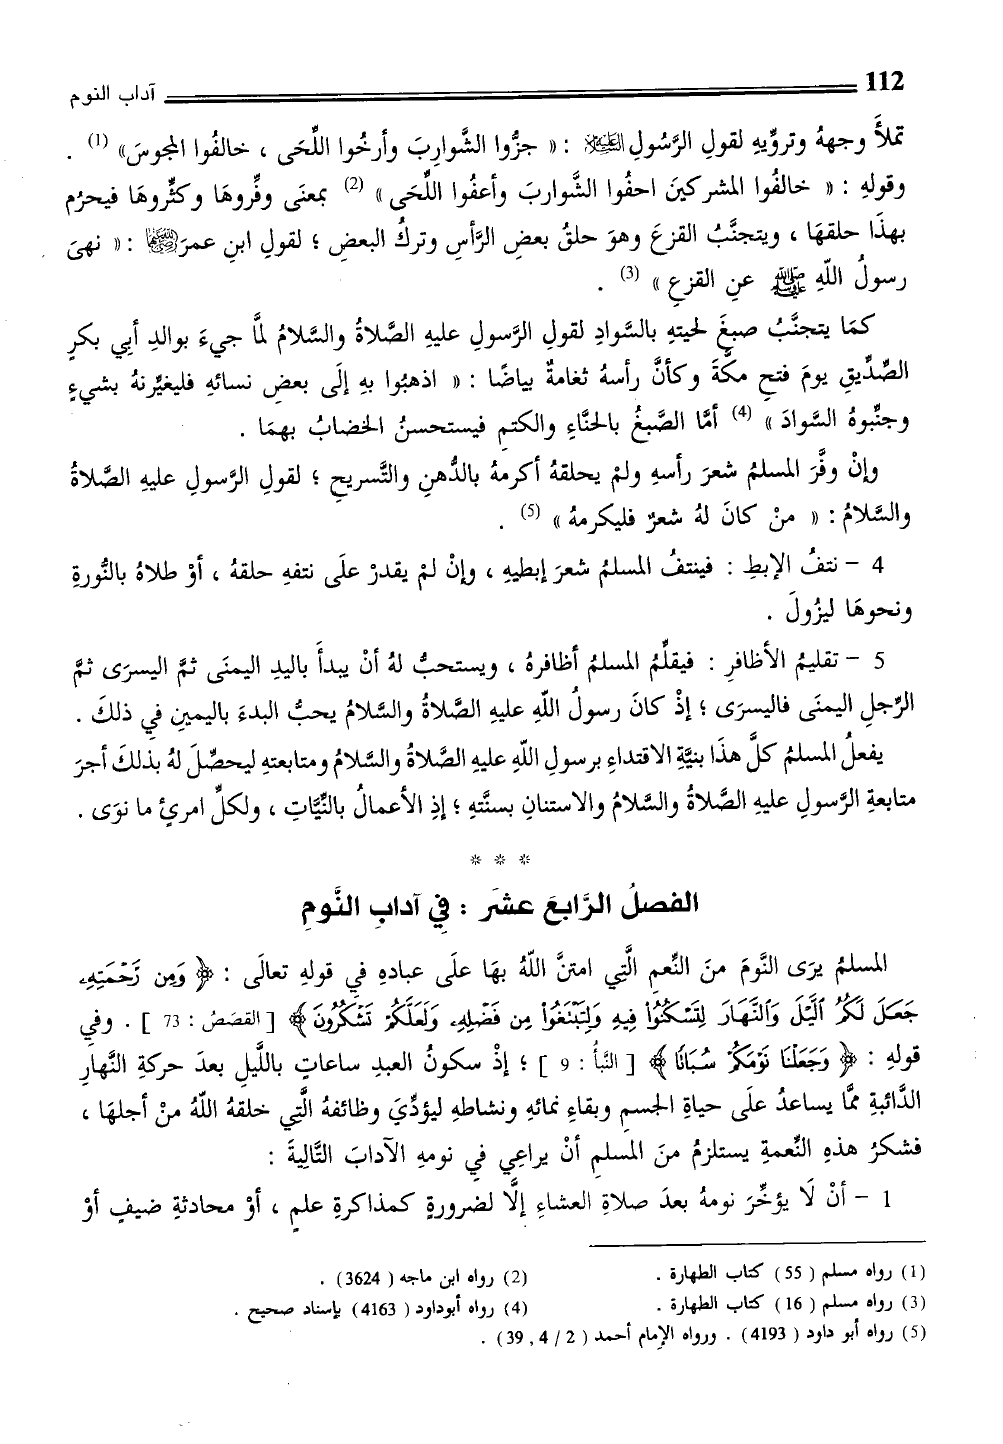 112 آداب النوم
تملأَ وجههُ وتروِّيهِ لقولِ الرَّسُولِ ﷺ : « جزُّوا الشَّوارِبَ وأرخُوا اللِّحَى ، خالفُوا المجوسَ» (1) .
وقولهِ : « خالفُوا المشركينَ احفُوا الشَّواربَ وأعفُوا اللِّحَى » (2) بمعنَى وفِّروهَا وكثِّروهَا فيحرُم
بهذَا حلقهَا ، ويتجنَّبُ القزعَ وهوَ حلقُ بعضِ الرَّأسِ وتركُ البعضِ ؛ لقولِ ابنِ عمرَ : « نهىَ
رسولُ اللّهِ ﷺ عنِ القزعِ » (3) .
كمَا يتجنَّبُ صبغَ لحيتهِ بالسَّوادِ لقولِ الرَّسولِ عليهِ الصَّلاةُ والسَّلامُ لمَّا جيءَ بوالدِ أبِي بكرٍ
الصِّدِّيقِ يومَ فتحِ مكَّةَ وكأنَّ رأسهُ ثغامةٌ بياضًا : « اذهبُوا بهِ إلَى بعضِ نسائهِ فليغيِّرنهُ بشيءٍ
وجنِّبوهُ السَّوادَ » (4) أمَّا الصَّبغُ بالحنَّاءِ والكتمِ فيستحسنُ الخضابُ بهمَا .
وإنْ وفَّرَ المسلمُ شعرَ رأسهِ ولمْ يحلقهُ أكرمهُ بالدُّهنِ والتَّسريحِ ؛ لقولِ الرَّسولِ عليهِ الصَّلاةُ
والسَّلامُ : « منْ كانَ لهُ شعرٌ فليكرمهُ » (5) .
4 – نتفُ الإبطِ : فينتفُ المسلمُ شعرَ إبطيهِ ، وإنْ لمْ يقدرْ علَى نتفهِ حلقهُ ، أوْ طلاهُ بالنُّورةِ
ونحوهَا ليزُولَ .
5 – تقليمُ الأظافرِ : فيقلِّمُ المسلمُ أظافرهُ ، ويستحبُّ لهُ أنْ يبدأَ باليدِ اليمنَى ثمَّ اليسرَى ثمَّ
الرِّجلِ اليمنَى فاليسرَى ؛ إذْ كانَ رسولُ اللّهِ عليهِ الصَّلاةُ والسَّلامُ يحبُّ البدءَ باليمينِ فِي ذلكَ .
يفعلُ المسلمُ كلَّ هذَا بنيَّةِ الاقتداءِ برسولِ اللّهِ عليهِ الصَّلاةُ والسَّلامُ ومتابعتهِ ليحصِّلَ لهُ بذلكَ أجرَ
متابعةِ الرَّسولِ عليهِ الصَّلاةُ والسَّلامُ والاستنانِ بسنَّتهِ ؛ إذِ الأعمالُ بالنِّيَّاتِ ، ولكلِّ امرئٍ ما نوَى .
* * *
الفصلُ الرَّابعَ عشَرَ : فِي آدابِ النَّومِ
المسلمُ يرَى النَّومَ منَ النِّعمِ الَّتِي امتنَّ اللّهُ بهَا علَى عبادهِ فِي قولهِ تعالَى : ﴿ وَمِن رَّحْمَتِهِۦ
جَعَلَ لَكُمُ ٱلَّيْلَ وَٱلنَّهَارَ لِتَسْكُنُوا۟ فِيهِ وَلِتَبْتَغُوا۟ مِن فَضْلِهِۦ وَلَعَلَّكُمْ تَشْكُرُونَ ﴾ [ القصَصُ : 73 ] . وفِي
قولهِ : ﴿ وَجَعَلْنَا نَوْمَكُمْ سُبَاتًا ﴾ [ النَّبأُ : 9 ] ؛ إذْ سكونُ العبدِ ساعاتٍ باللَّيلِ بعدَ حركةِ النَّهارِ
الدَّائبةِ ممَّا يساعدُ علَى حياةِ الجسمِ وبقاءِ نمائهِ ونشاطهِ ليؤدِّيَ وظائفهُ الَّتِي خلقهُ اللّهُ منْ أجلهَا ،
فشكرُ هذهِ النِّعمةِ يستلزمُ منَ المسلمِ أنْ يراعِي فِي نومهِ الآدابَ التَّاليةَ :
1 – أنْ لَا يؤخِّرَ نومهُ بعدَ صلاةِ العشاءِ إلَّا لضرورةٍ كمذاكرةِ علمٍ ، أوْ محادثةِ ضيفٍ أوْ
(1) رواه مسلم ( 55 ) كتاب الطهارة . (2) رواه ابن ماجه ( 3624 ) .
(3) رواه مسلم ( 16 ) كتاب الطهارة . (4) رواه أبوداود ( 4163 ) بإسناد صحيح .
(5) رواه أبو داود ( 4193 ) . ورواه الإمام أحمد ( 2 / 4 , 39 ) .